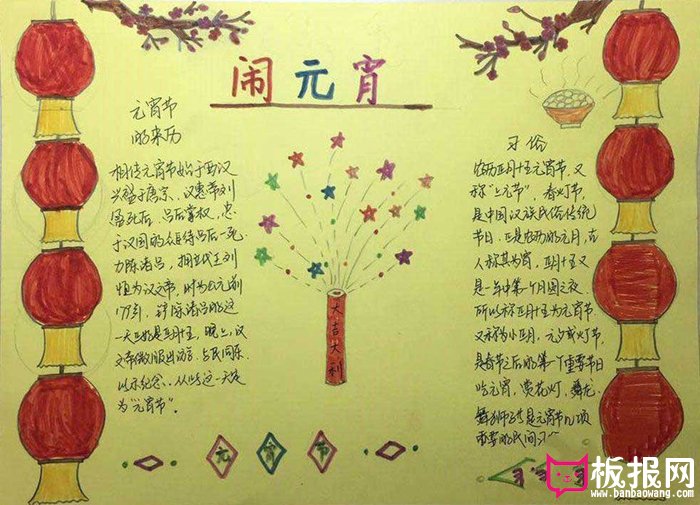 闹元宵
元宵节
的来历
相传元宵节始于西汉
兴盛于唐宗、汉惠帝刘
盈死后,吕后掌权,忠
于汉国的众臣待吕后一死
力除诸吕,拥
恒为汉文帝,时为公元前
179年,诛除诸吕的这
一天正好是正月十五,晚上,汉
文帝微服出访,与民同乐,
以示纪念、从此这一天定
为“元宵节”。
大吉大利
习俗
农历正月十五元宵节,又
称“上元节”,春灯节,
是中国汉族民俗传统
节日,正是农历的元月,古
人称其为宵,正月十五又
是一年中第一个月圆之夜
所以称正月十五为元宵节,
又称为小正月、元夕或灯节,
是春节之后的第一个重要节日
吃元宵,赏花灯,舞龙、
舞狮子等是元宵节几项
重要的民间习~
元宵节
板报网
www.banbaowang.com